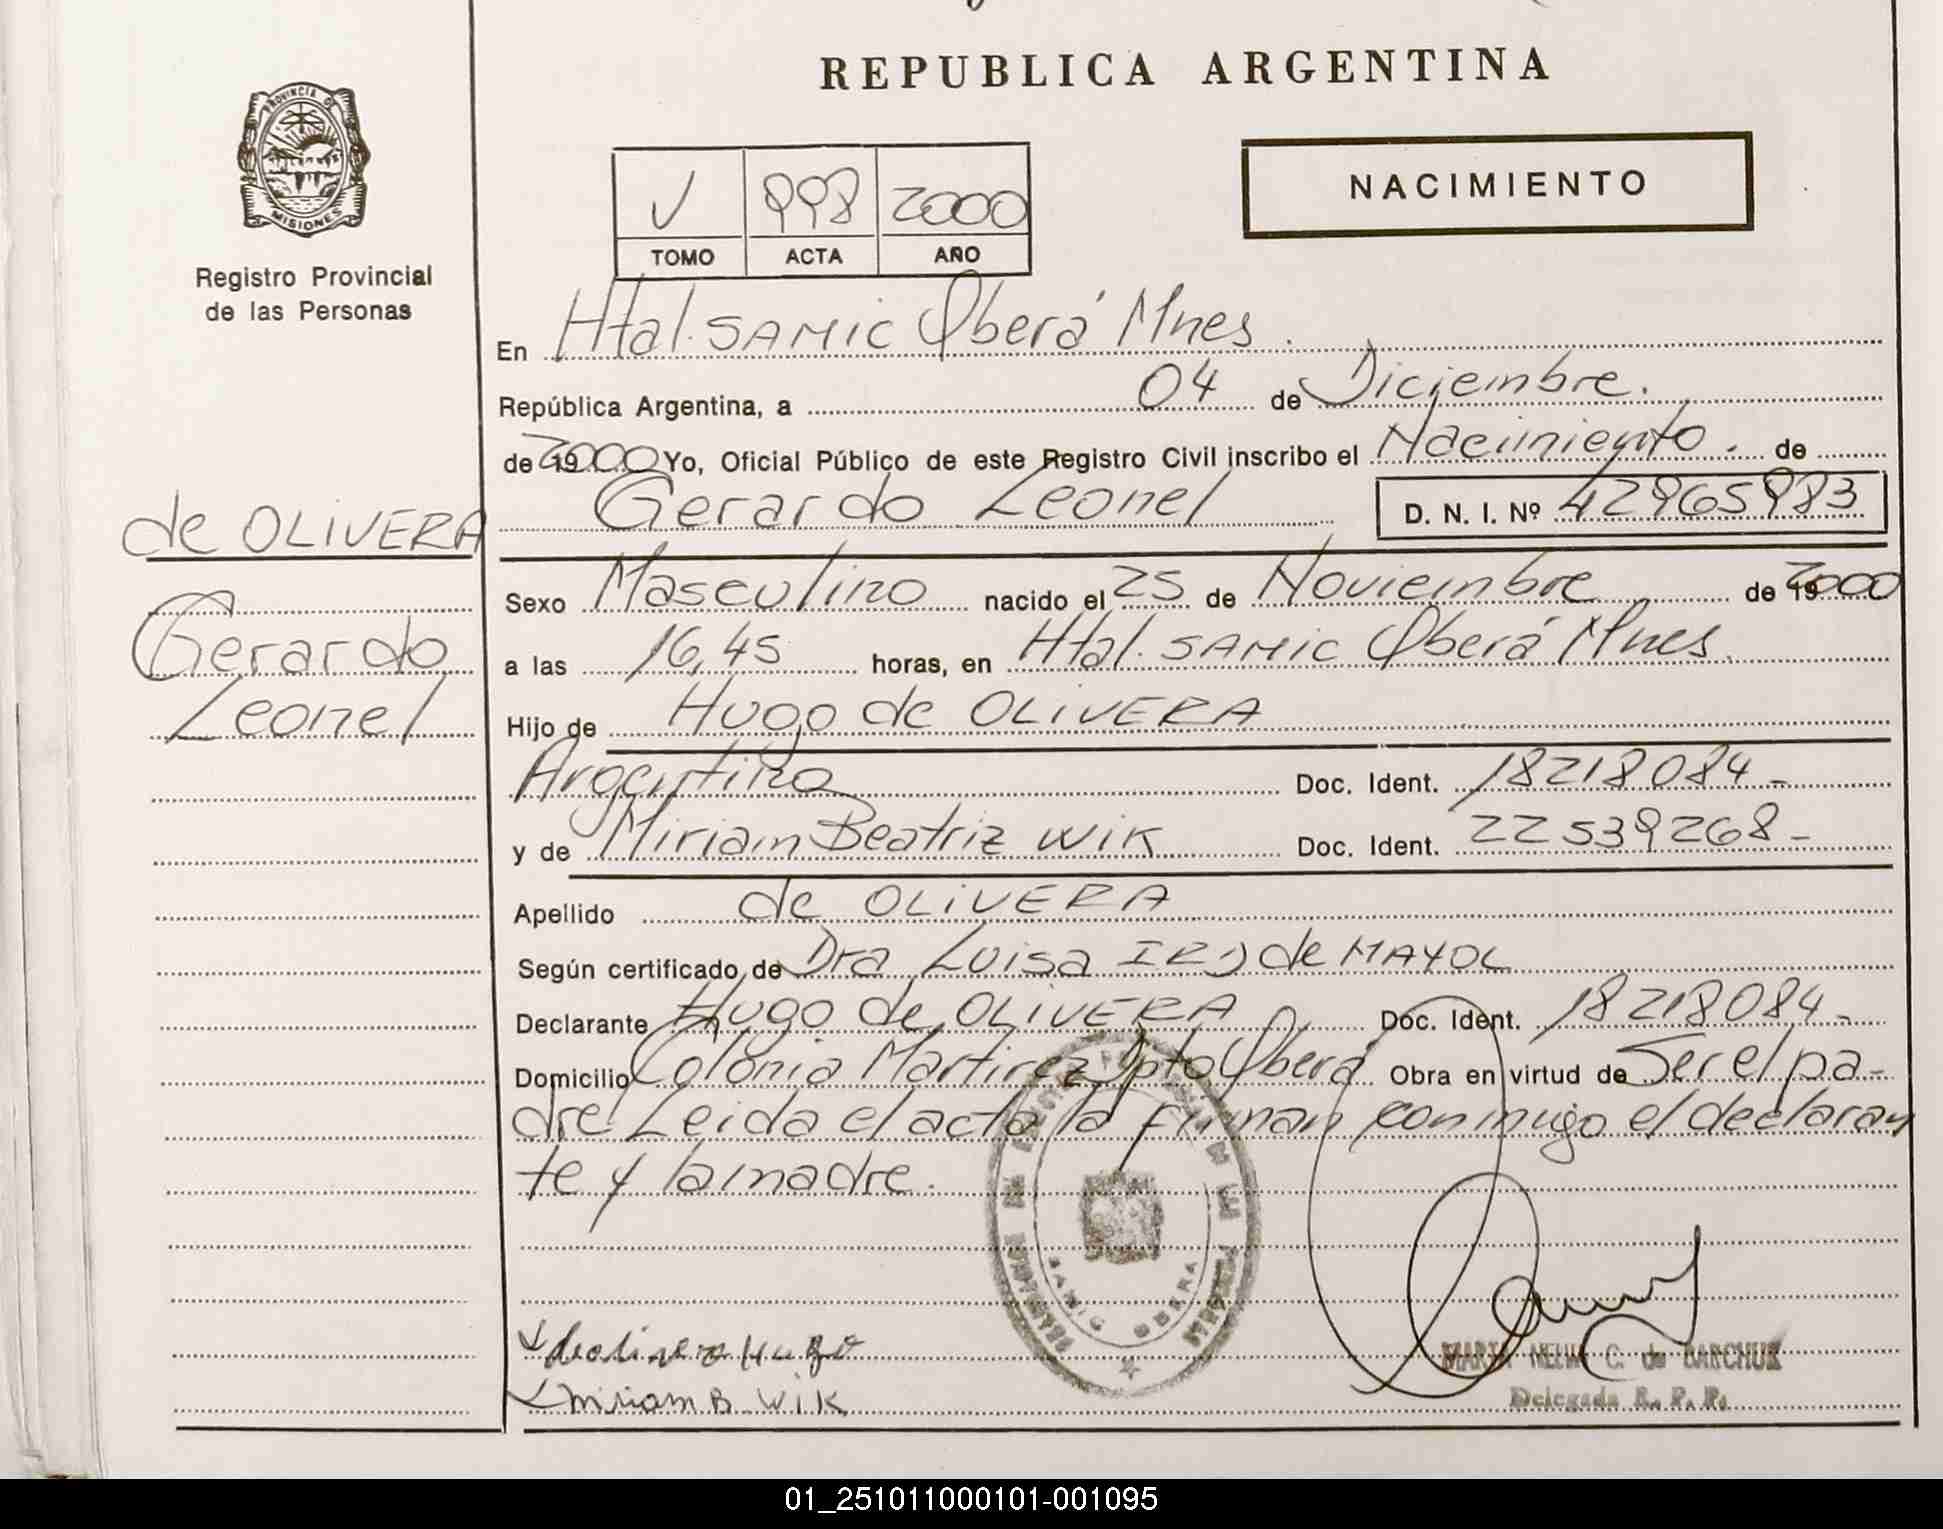 REPUBLICA ARGENTINA
PROVINCIA DE
MISIONES
Registro Provincial
de las Personas
V 998 2000
TOMO ACTA AÑO
NACIMIENTO
En Htal. SAMIC Oberá Mnes.
República Argentina, a 04 de Diciembre.
de 2000 Yo, Oficial Público de este Registro Civil inscribo el Nacimiento. de
Gerardo Leonel D. N. I. Nº 42965983
de OLIVERA
Gerardo
Leonel
Sexo Masculino nacido el 25 de Noviembre de 2000
a las 16,45 horas, en Htal. SAMIC Oberá Mnes.
Hijo de Hugo de OLIVERA
Argentino Doc. Ident. 18218084-
y de Miriam Beatriz WIK Doc. Ident. 22539268-
Apellido de OLIVERA
Según certificado de Dra Luisa de MAYOL
Declarante Hugo de OLIVERA Doc. Ident. 18218084-
Domicilio Colonia Martirez Dpto Oberá Obra en virtud de Ser el pa-
dre Leida el acta la firman conmigo el declaran
te y la madre.
SAMIC OBERA
deolivera Hugo
Miriam B. WIK
MARTA C. de BARCHUK
Delegada R. P. P.
01_251011000101-001095